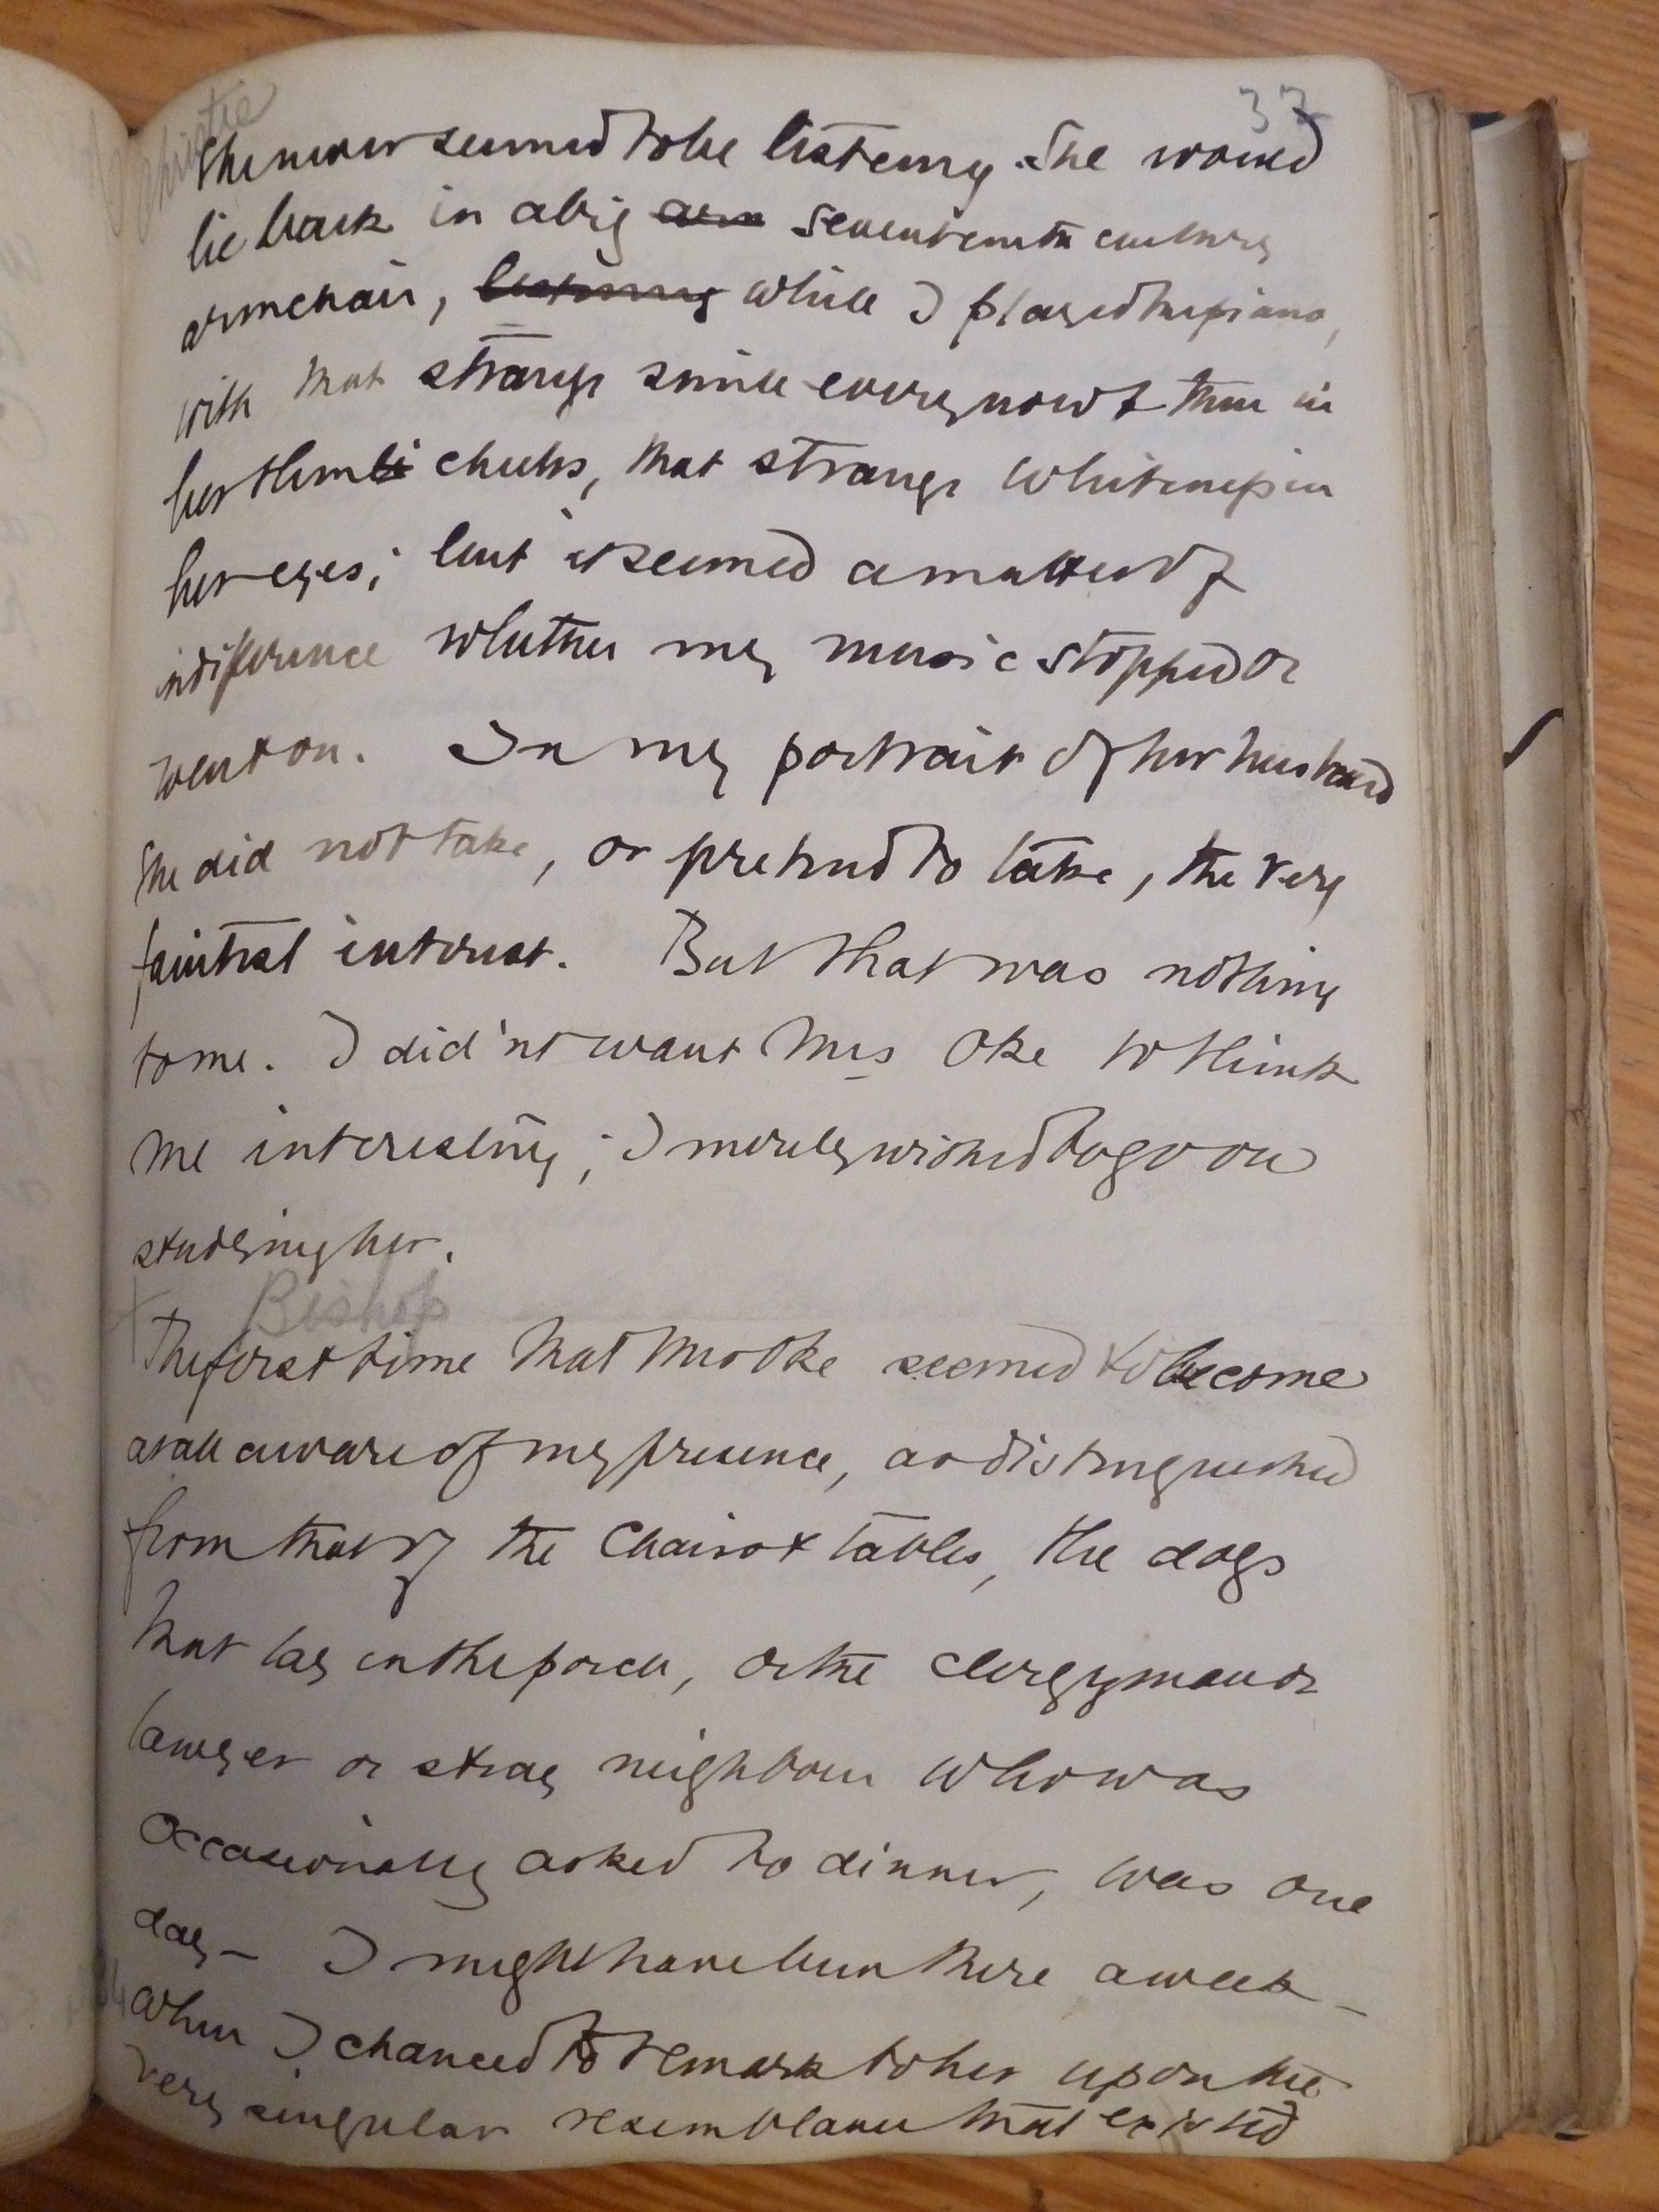 37
She never seemed to be listening. She would
lie back in a big arm seventeenth century
armchair, listening while I played the piano,
with that strange smile every now & then in
her thin cheeks, that strange whiteness in
her eyes; but it seemed a matter of
indifference whether my music stopped or
went on. In my portrait of her husband
she did not take, or pretend to take, the very
faintest interest. But that was nothing
to me. I did'nt want Mrs Oke to think
me interesting; I merely wished to go on
studying her.
Bishop
The first time that Mrs Oke seemed to become
at all aware of my presence, as distinguished
from that of the chairs & tables, the dogs
that lay in the porch, or the clergyman or
lawyer or stray neighbour who was
occasionally asked to dinner, was one
day – I might have been there a week –
when I chanced to remark to her upon the
very singular resemblance that existed